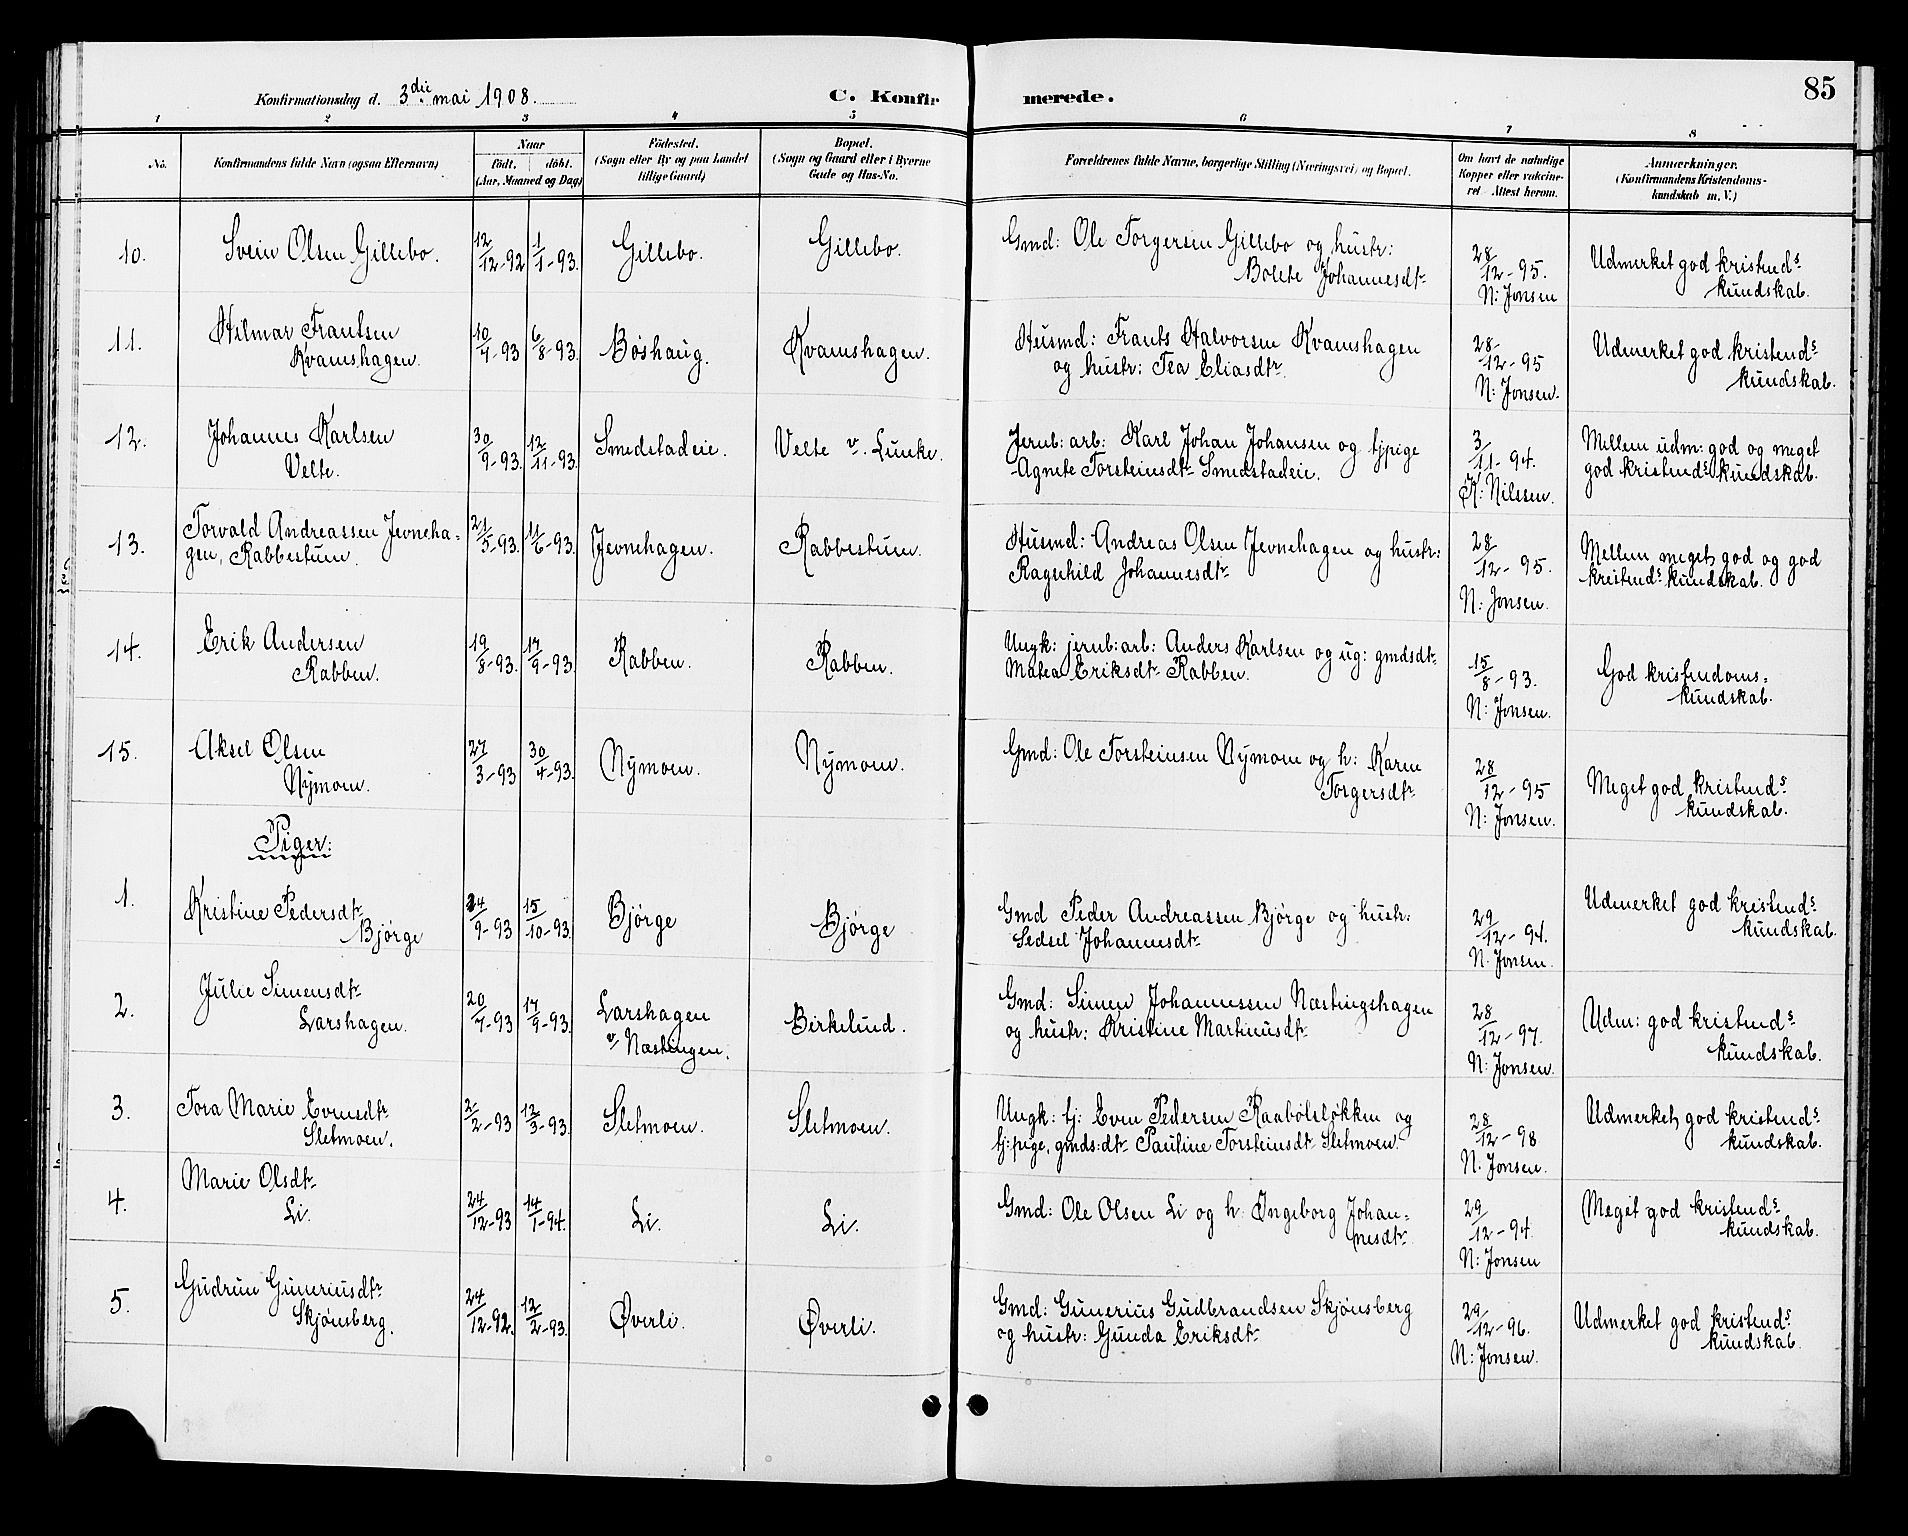 Konfirmationsdag d. 3die mai 1908.
C. Konfirmerede.
85
1 2 3 4 5 6 7 8
No.
Konfirmandens fulde Navn (ogsaa Efternavn)
Naar
født. døbt.
(Aar, Maaned og Dag)
Fødested.
(Sogn eller By og paa Landet
tillige Gaard)
Bopæl.
(Sogn og Gaard eller i Byerne
Gade og Hus-No.
Forældrenes fulde Navne, borgerlige Stilling (Næringsvei) og Bopæl.
Om havt de naturlige
Kopper eller vakcine-
ret Attest herom.
Anmærkninger.
(Konfirmandens Kristendoms-
kundskab m. V.)
10. Svein Olsen Gillebo. 12/12-92 1/1-93. Gillebo. Gillebo. Gmd: Ole Torgersen Gillebo og hustr:
Bolete Johannesdtr
28/12-95.
N: Jonsen
Udmerket god kristends
kundskab.
11. Hilmar Frantsen
Kvamshagen.
10/7-93 6/8-93. Bøshaug. Kvamshagen. Husmd: Frants Halvorsen Kvamshagen
og hustr: Tea Eliasdtr.
28/12-95
N: Jonsen.
Udmerket god kristends
kundskab.
12. Johannes Karlsen
Velte.
30/9-93. 12/11-93. Smedstadeie. Velte v. Lunke. Jernb: arb: Karl Johan Johansen og tjpige
Agnete Torsteinsdtr Smedstadeie.
3/11-94.
K: Nilssen.
Mellem udm: god og meget
god kristends kundskab.
13. Torvald Andreassen Jevneha-
gen, Rabbestuen.
21/5-93. 11/6-93. Jevnehagen. Rabbestuen. Husmd: Andreas Olsen Jevnehagen og hustr:
Ragnhild Johannesdtr
28/12-95.
N: Jonsen.
Mellem meget god og god
kristends kundskab.
14. Erik Andersen
Rabben.
19/8-93. 17/9-93. Rabben. Rabben. Ungk: jernb: arb: Anders Karlsen og ug: gmdsdtr
Matea Eriksdtr Rabben.
15/8-93.
N: Jonsen.
God kristendoms-
kundskab.
15. Aksel Olsen
Nymoen.
27/3-93 30/4-93. Nymoen. Nymoen. Gmd: Ole Torsteinsen Nymoen og h: Karen
Torgersdtr
28/12-95
N: Jonsen.
Meget god kristends
kundskab.
Piger:
1. Kristine Pedersdtr
Bjørge
24/9-93 15/10-93. Bjørge Bjørge Gmd Peder Andreassen Bjørge og hustr:
Sedsel Johannesdtr
29/12-94.
N. Jonsen.
Udmerket god kristends
kundskab.
2. Julie Simensdtr
Larshagen.
20/7-93 17/9-93. Larshagen
v/ Næstingen.
Birkelund. Gmd: Simen Johannessen Næstingshagen
og hustr: Kristine Martinusdtr
28/12-97.
N: Jonsen.
Udm: god kristends
kundskab.
3. Tora Marie Evensdtr
Sletmoen.
2/2-93 12/3-93. Sletmoen. Sletmoen. Ungk: tj: Even Pedersen Raabølsløkken og
tj:pige, gmds:dtr Pauline Torsteinsdtr Sletmoen.
28/12-98
N. Jonsen.
Udmerket god kristends
kundskab.
4. Marie Olsdtr
Li.
24/12-93 14/1-94. Li. Li. Gmd: Ole Olsen Li og h: Ingeborg Johan-
nesdtr.
29/12-94.
N: Jonsen
Meget god kristends
kundskab.
5. Gudrun Guneriusdtr
Skjønsberg.
24/12-92. 12/2-93. Øverli. Øverli. Gmd: Gunerius Gudbrandsen Skjønsberg
og hustr: Gunda Eriksdtr
29/12-96.
N: Jonsen.
Udmerket god kristends
kundskab.